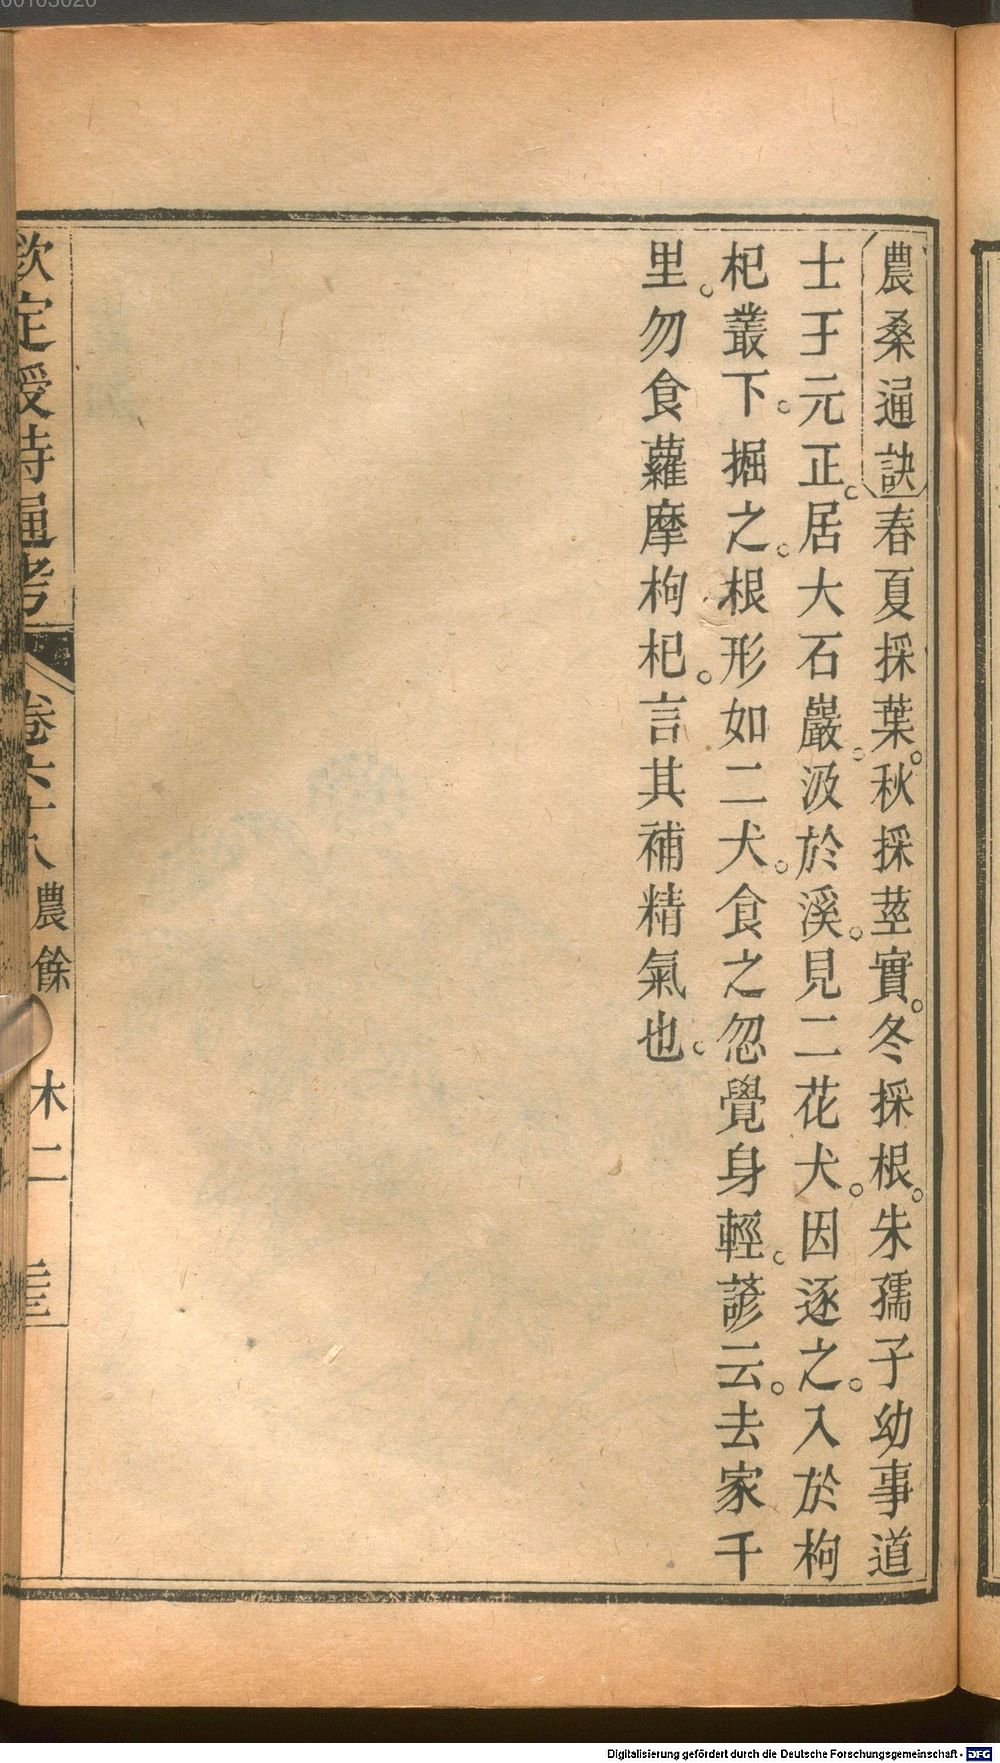 農桑通訣春夏採葉。秋採莖實。冬採根。朱孺子幼事道
士王元正。居大石巖。汲於溪。見二花犬。因逐之。入於枸
杞叢下。掘之。根形如二犬。食之忽覺身輕。諺云。去家千
里。勿食蘿摩枸杞。言其補精氣也。
欽定授時通考
卷六十八
農餘
木二
Digitalisierung gefördert durch die Deutsche Forschungsgemeinschaft - DFG